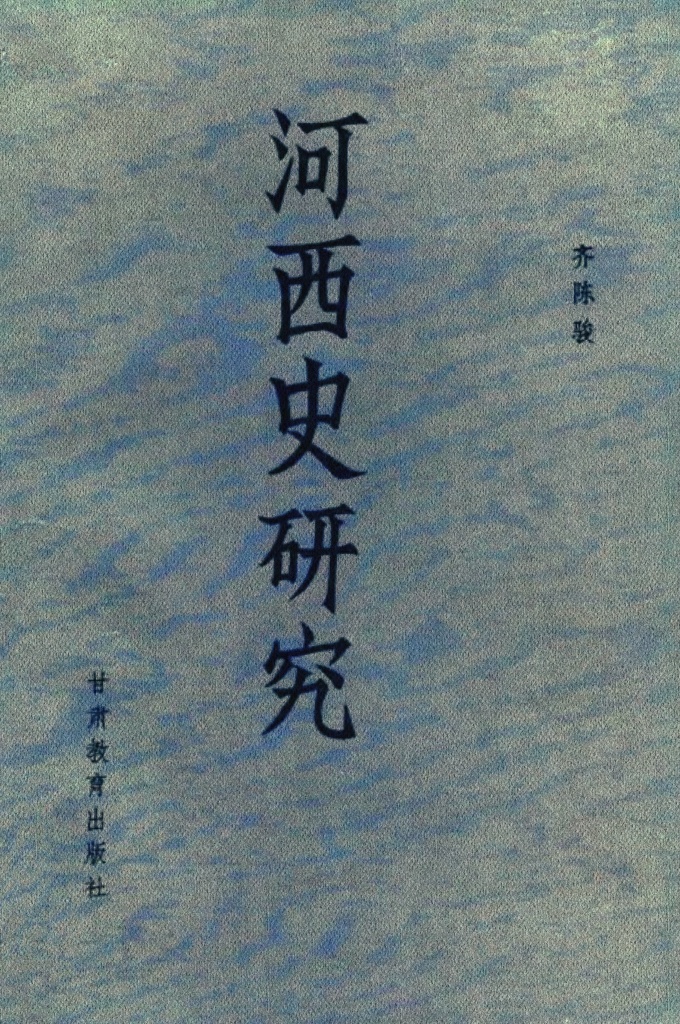 齐陈骏
河西史研究
甘肃教育出版社